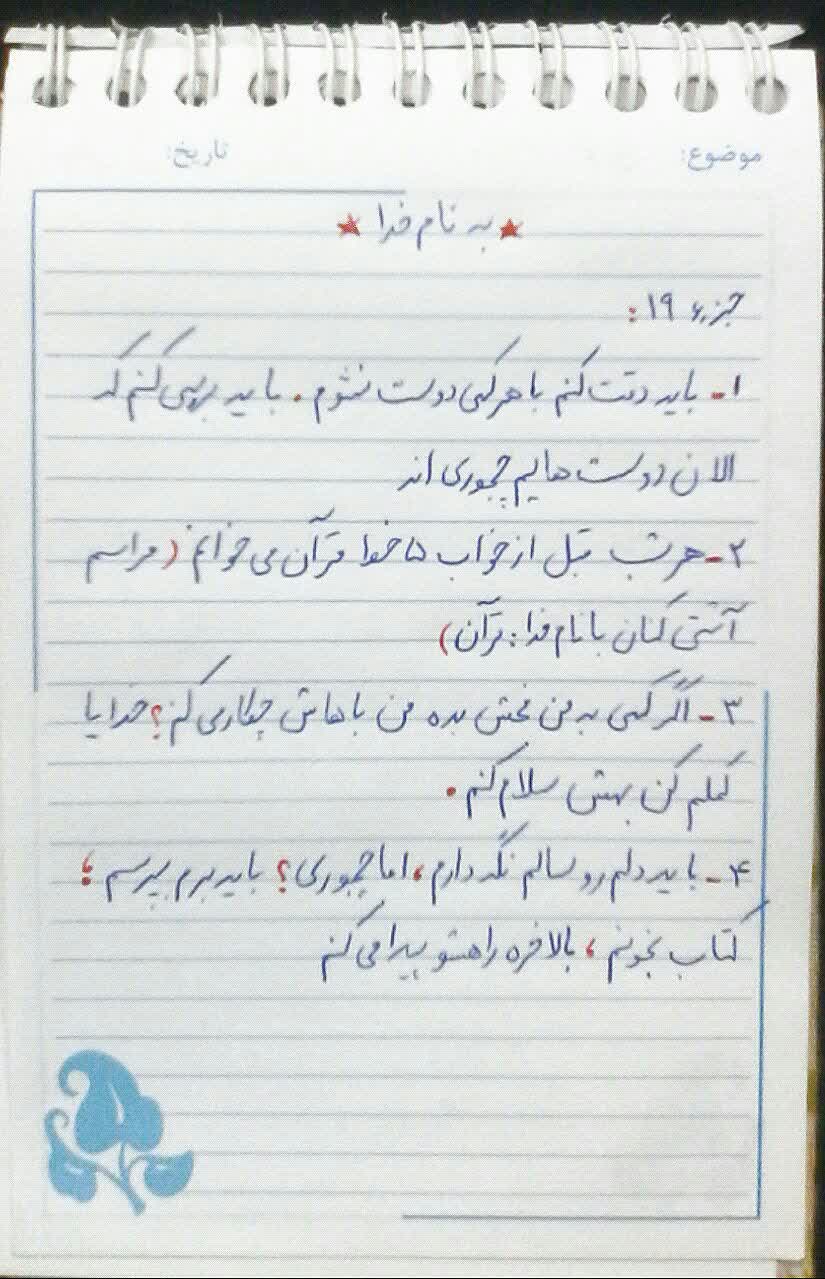 موضوع: تاریخ:
★ به نام خدا ★
جزء ۱۹ :
۱- باید دقت کنم با هرکسی دوست نشوم . باید بررسی کنم که
الان دوست هایم چجوری اند
۲- هرشب قبل از خواب ۵ خط قرآن می خوانم (مراسم
آشتی کنان با نام خدا : قرآن)
۳- اگر کسی به من فحش بده من باهاش چکار می کنم ؟ خدایا
کمکم کن بهش سلام کنم .
۴- باید دلم رو سالم نگه دارم ، اما چجوری ؟ باید برم بپرسم ؛
کتاب بخونم ، بالاخره راهشو پیدا می کنم